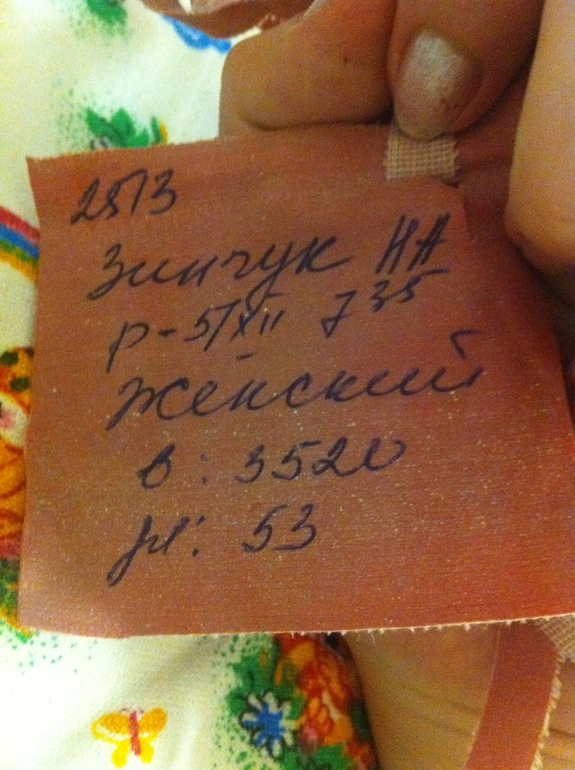 2513
Зинчук НА
р-5/XII 7 35
Женский
в: 3520
рл: 53